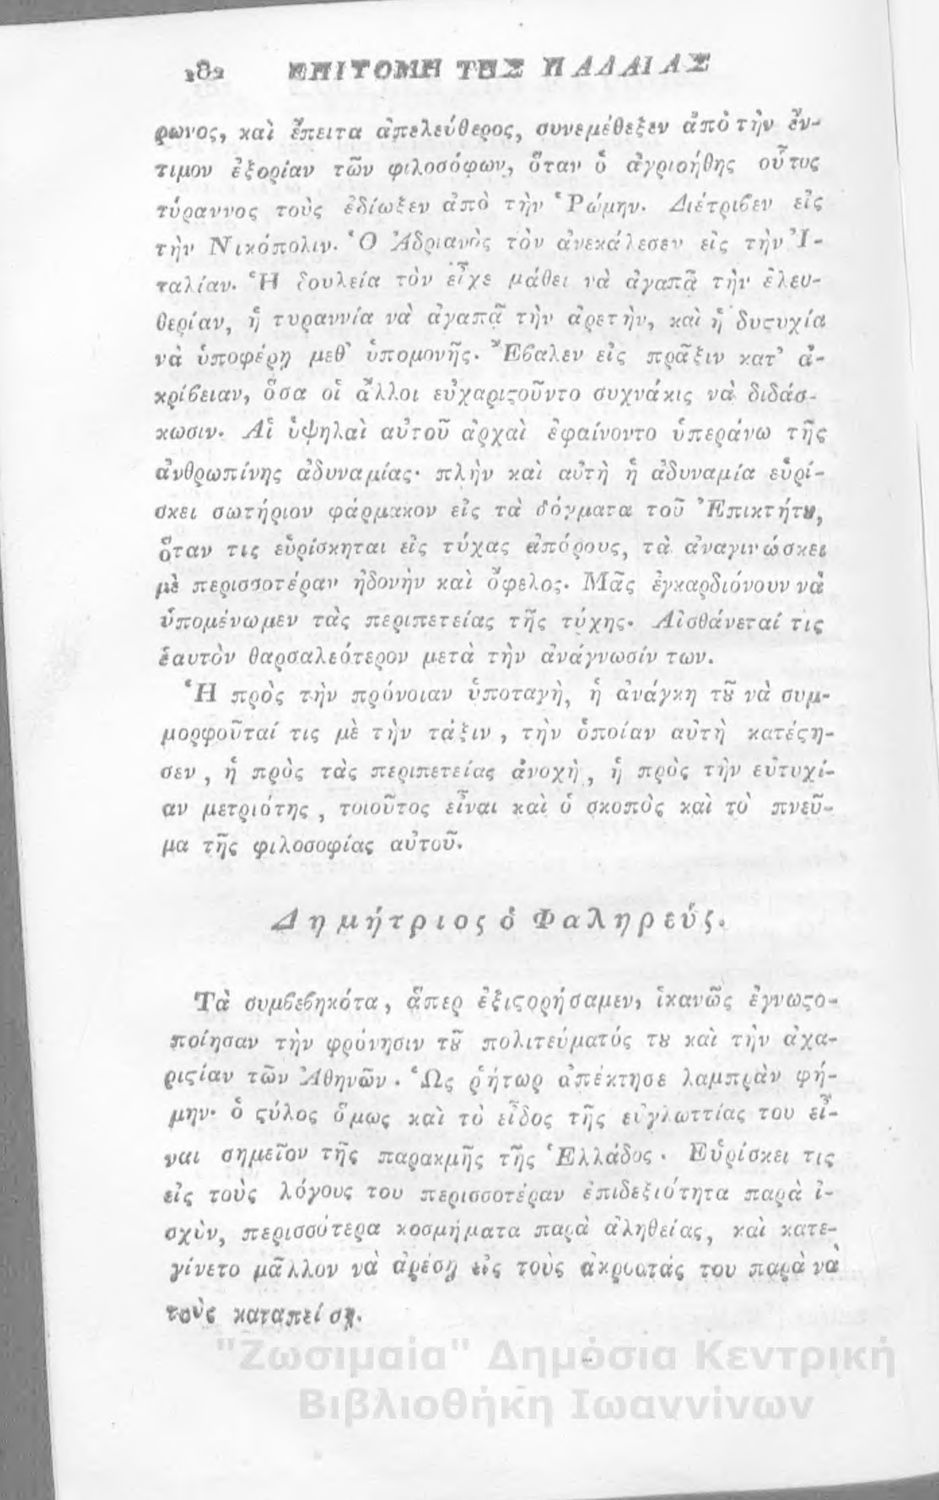 182 ΕΠΙΤΟΜΗ ΤΗΣ ΠΑΛΑΙΑΣ
ρωνος, καὶ ἔπειτα ἀπελεύθερος, συνεμέθεξεν ἀπὸ τὴν ἔν-
τιμον ἐξορίαν τῶν φιλοσόφων, ὅταν ὁ ἀγριοήθης οὗτος
τύραννος τοὺς ἐδίωξεν ἀπὸ τὴν Ῥώμην. Διέτριϐεν εἰς
τὴν Νικόπολιν. Ὁ Ἀδριανὸς τὸν ἀνεκάλεσεν εἰς τὴν Ἰ-
ταλίαν. Ἡ δουλεία τὸν εἶχε μάθει νὰ ἀγαπᾷ τὴν ἐλευ-
θερίαν, ἡ τυραννία νὰ ἀγαπᾷ τὴν ἀρετὴν, καὶ ἡ δυςυχία
νὰ ὑποφέρῃ μεθ᾽ ὑπομονῆς. Ἔϐαλεν εἰς πρᾶξιν κατ᾽ ἀ-
κρίϐειαν, ὅσα οἱ ἄλλοι εὐχαριςοῦντο συχνάκις νὰ διδάσ-
κωσιν. Αἱ ὑψηλαὶ αὐτοῦ ἀρχαὶ ἐφαίνοντο ὑπεράνω τῆς
ἀνθρωπίνης ἀδυναμίας· πλὴν καὶ αὐτὴ ἡ ἀδυναμία εὑρί-
σκει σωτήριον φάρμακον εἰς τὰ δόγματα τοῦ Ἐπικτήτȣ,
ὅταν τις εὑρίσκηται εἰς τύχας ἀπόρους, τὰ ἀναγινώσκει
μὲ περισσοτέραν ἡδονὴν καὶ ὄφελος. Μᾶς ἐγκαρδιόνουν νὰ
ὑπομένωμεν τὰς περιπετείας τῆς τύχης. Αἰσθάνεταί τις
ἑαυτὸν θαρσαλεότερον μετὰ τὴν ἀνάγνωσίν των.
Ἡ πρὸς τὴν πρόνοιαν ὑποταγὴ, ἡ ἀνάγκη τȣ͂ νὰ συμ-
μορφοῦταί τις μὲ τὴν τάξιν, τὴν ὁποίαν αὐτὴ κατέςη-
σεν, ἡ πρὸς τὰς περιπετείας ἀνοχὴ, ἡ πρὸς τὴν εὐτυχί-
αν μετριότης, τοιοῦτος εἶναι καὶ ὁ σκοπὸς καὶ τὸ πνεῦ-
μα τῆς φιλοσοφίας αὐτοῦ.
Δημήτριος ὁ Φαληρεύς.
Τὰ συμϐεϐηκότα, ἅπερ ἐξιςορήσαμεν, ἱκανῶς ἐγνωςο-
ποίησαν τὴν φρόνησιν τȣ͂ πολιτεύματός τȣ καὶ τὴν ἀχα-
ριςίαν τῶν Ἀθηνῶν. Ὡς ῥήτωρ ἀπέκτησε λαμπρὰν φή-
μην· ὁ ςύλος ὅμως καὶ τὸ εἶδος τῆς εὐγλωττίας του εἶ-
ναι σημεῖον τῆς παρακμῆς τῆς Ἑλλάδος. Εὑρίσκει τις
εἰς τοὺς λόγους του περισσοτέραν ἐπιδεξιότητα παρὰ ἰ-
σχὺν, περισσότερα κοσμήματα παρὰ ἀληθείας, καὶ κατε-
γίνετο μᾶλλον νὰ ἀρέσῃ εἰς τοὺς ἀκροατάς του παρὰ νὰ
τοὺς καταπείσῃ.
"Ζωσιμαία" Δημόσια Κεντρική
Βιβλιοθήκη Ιωαννίνων